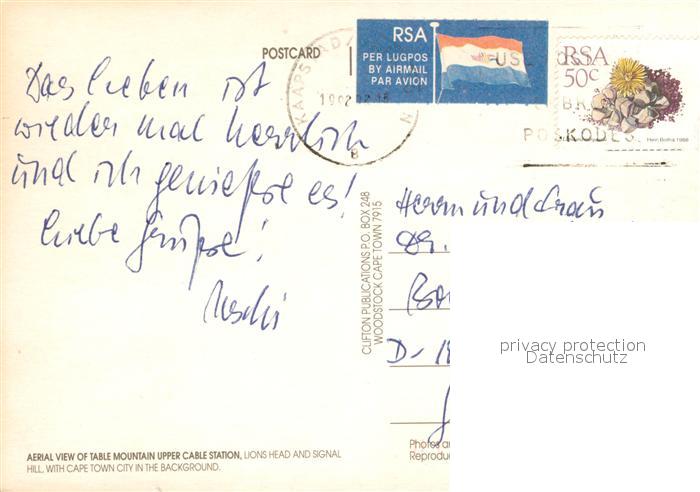 POSTCARD
RSA
PER LUGPOS
BY AIRMAIL
PAR AVION
RSA
50c
Hein Botha 1988
KAAPSTAD
1992
N
8
US
POSKODES
Das Leben ist
wieder mal herrlich
und ich genieße es!
Liebe Grüße!
Uschi
CLIFTON PUBLICATIONS P.O. BOX 248
WOODSTOCK CAPE TOWN 7915
Herrn und Frau
D-
privacy protection
Datenschutz
AERIAL VIEW OF TABLE MOUNTAIN UPPER CABLE STATION, LIONS HEAD AND SIGNAL
HILL, WITH CAPE TOWN CITY IN THE BACKGROUND.